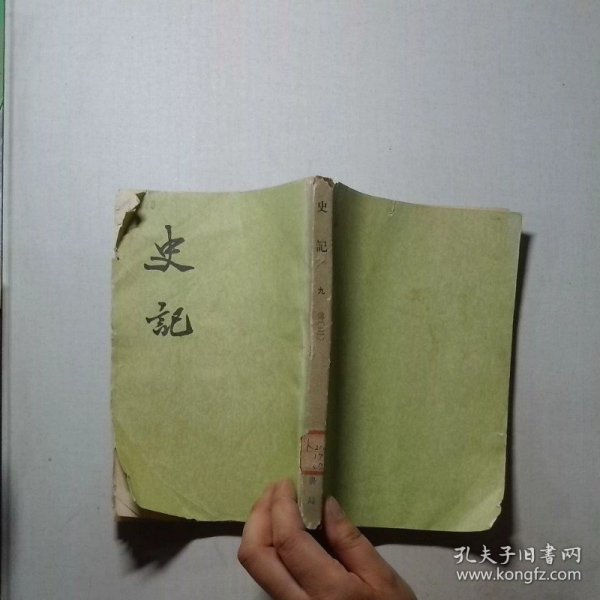 史
記
史
記
九
書
局
孔夫子旧書网
www.kongfz.com